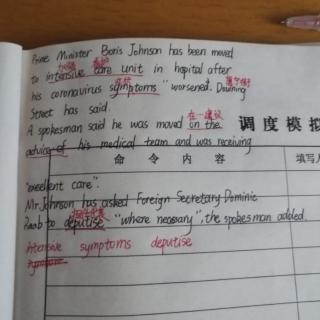 Prime Minister Boris Johnson has been moved
加强 看护
to intensive care unit in hopital after
症状
his coronavirus symptoms "worsened. Downing
唐宁街
Street has said.
在…建议
A spokesman said he was moved on the
调度模拟
advice of his medical team and was receiving
命令内容 填写
"excellent care".
Mr Johnson has asked Foreign Secretary Dominic
Raab to deputise "where necessary", the spokesman added.
intensive symptoms deputise